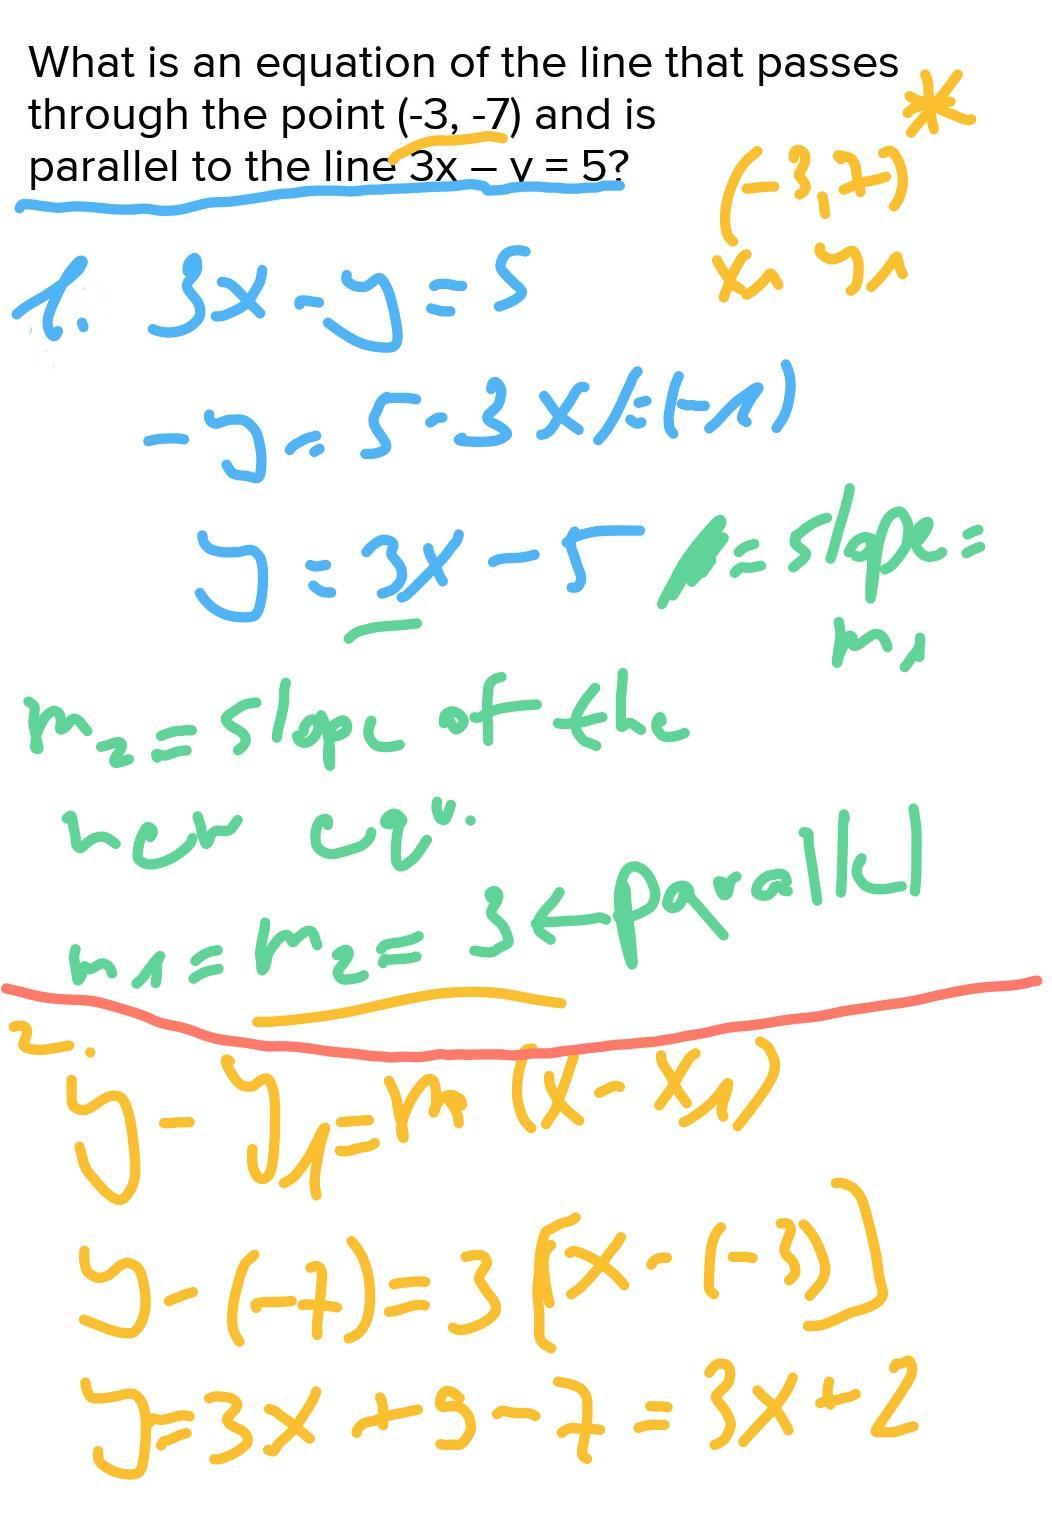 What is an equation of the line that passes
through the point (-3, -7) and is
parallel to the line 3x – y = 5?
*
(-3,7)
x1 y1
1. 3x - y = 5
-y = 5 - 3x /:(-1)
y = 3x - 5 = slope =
m1
m2 = slope of the
new equ.
m1 = m2 = 3 ← parallel
2.
y - y1 = m (x - x1)
y - (-7) = 3 [x - (-3)]
y = 3x + 9 - 7 = 3x + 2